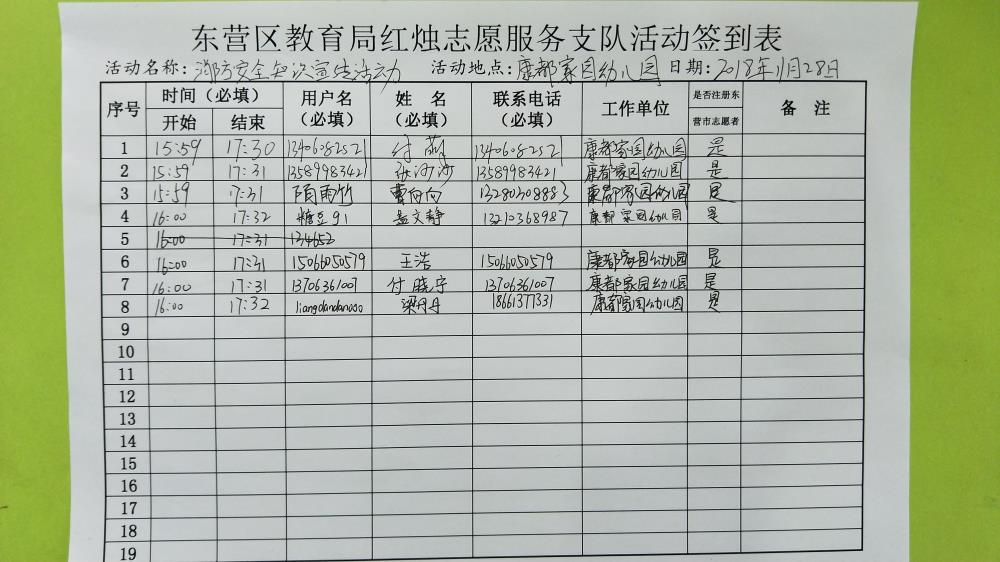 东营区教育局红烛志愿服务支队活动签到表
活动名称: 消防安全知识宣传活动 活动地点: 康都家园幼儿园 日期: 2018年11月28日
序号 时间（必填） 用户名（必填） 姓 名（必填） 联系电话（必填） 工作单位 是否注册东营市志愿者 备 注
开始 结束
1 15:59 17:30 13406082521 付 13406082521 康都家园幼儿园 是
2 15:59 17:31 13589983421 张沙沙 13589983421 康都家园幼儿园 是
3 15:59 17:31 雨竹 曹向向 13280308883 康都家园幼儿园 是
4 16:00 17:32 糖豆91 孟文静 13210368987 康都家园幼儿园 是
5 16:00 17:31 134652
6 16:00 17:31 15066050579 王浩 15066050579 康都家园幼儿园 是
7 16:00 17:31 13706361007 付晓宇 13706361007 康都家园幼儿园 是
8 16:00 17:32 梁丹丹 18661377331 康都家园幼儿园 是
9
10
11
12
13
14
15
16
17
18
19